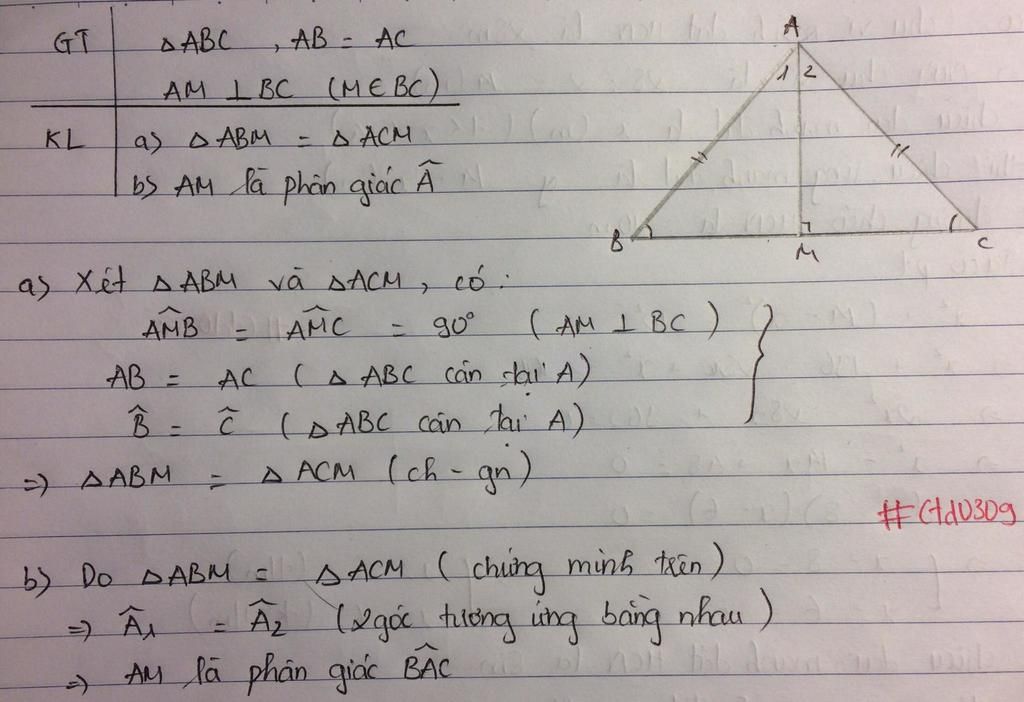 GT | ΔABC , AB = AC
AM ⊥ BC (M ∈ BC)
KL | a) ΔABM = ΔACM
b) AM là phân giác Â
A
1 2
B
M
C
a) Xét ΔABM và ΔACM, có:
AM̂B = AM̂C = 90° (AM ⊥ BC)
AB = AC (ΔABC cân tại A)
B̂ = Ĉ (ΔABC cân tại A)
=> ΔABM = ΔACM (ch - gn)
#Ctd0309
b) Do ΔABM = ΔACM (chứng minh trên)
=> Â1 = Â2 (2 góc tương ứng bằng nhau)
=> AM là phân giác BÂC